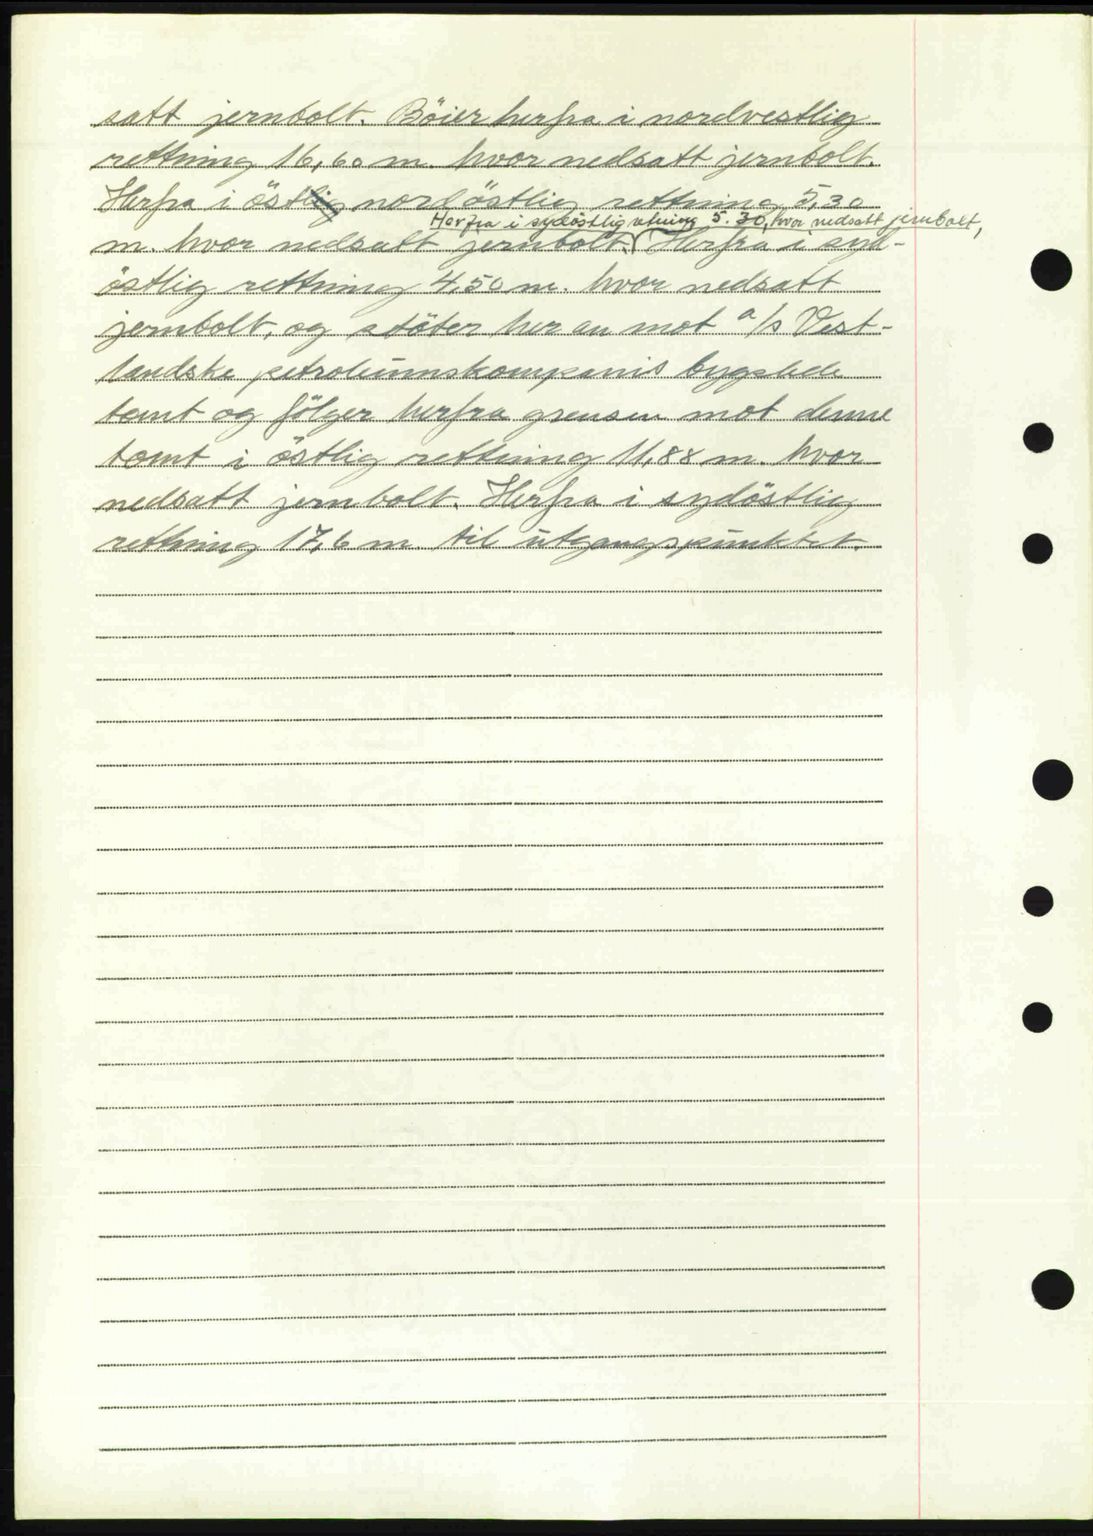 satt jernbolt. Böier herfra i nordvestlig
rettning 16,60 m. hvor nedsatt jernbolt.
Herfra i östlig nordöstlig rettning 5,30
Herfra i sydöstlig retning 5.30, hvor nedsatt jernbolt,
m. hvor nedsatt jernbolt. Herfra i syd-
östlig rettning 4,50 m. hvor nedsatt
jernbolt, og stöter her an mot a/s Vest-
landske petroleumskompanis bygslede
tomt og fölger herfra grensen mot denne
tomt i östlig rettning 11,88 m. hvor
nedsatt jernbolt. Herfra i sydöstlig
rettning 17,6 m. til utgangspunktet.